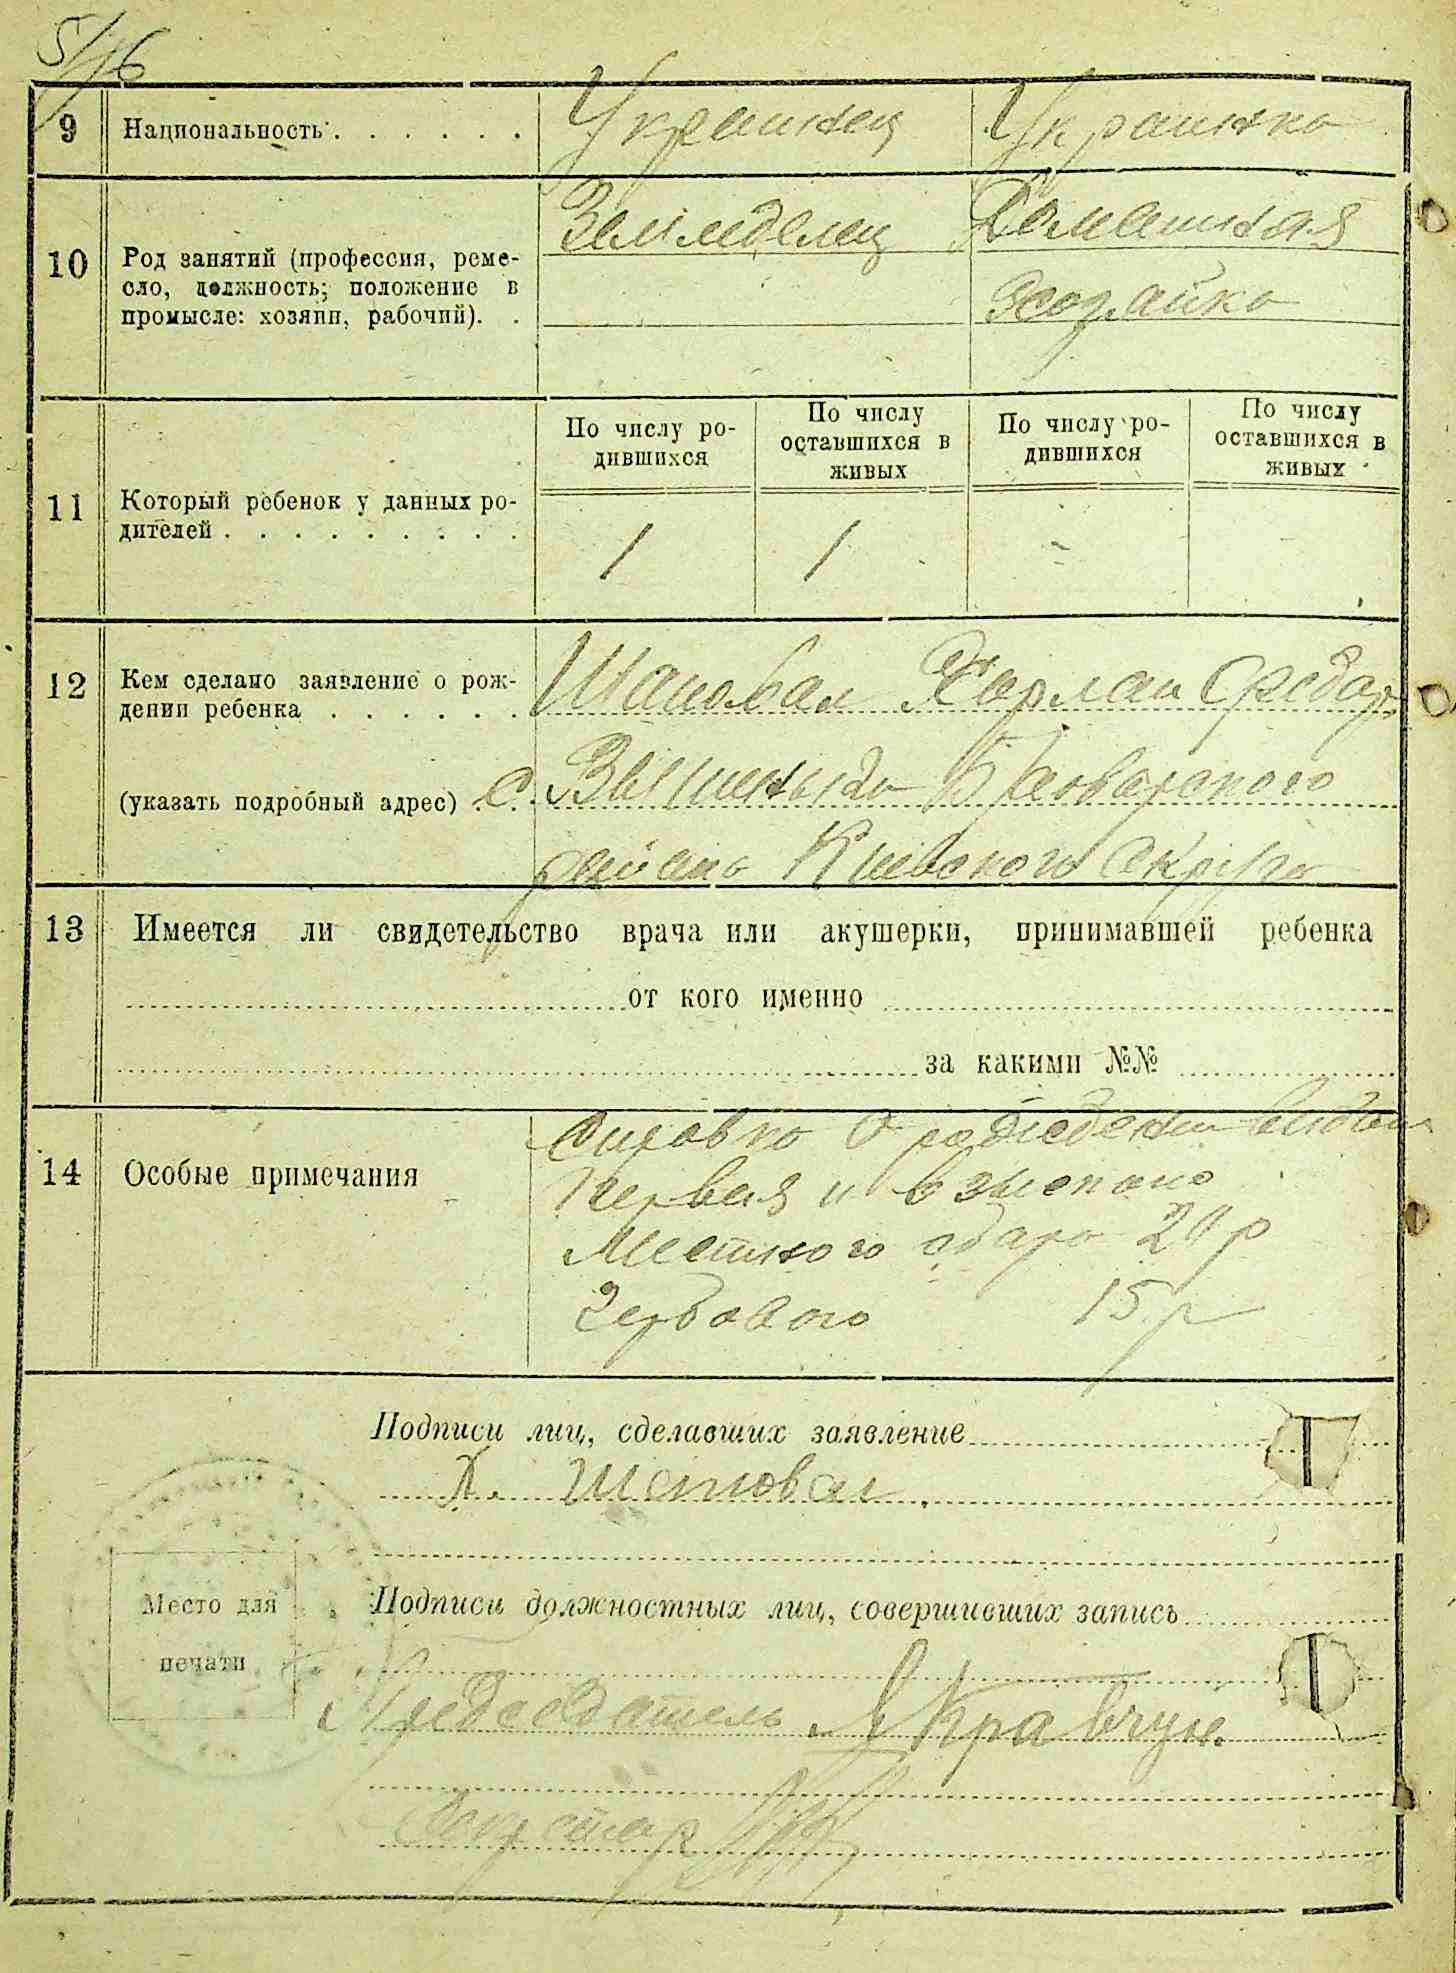 5/16
9 Национальность . . . . . . Украинец Украинка
10 Род занятий (профессия, реме-
сло, должность; положение в
промысле: хозяин, рабочий). .
Земледелец Домашняя
хозяйка
11 Который ребенок у данных ро-
дителей . . . . . . . . .
По числу ро-
дившихся
По числу
оставшихся в
живых
По числу ро-
дившихся
По числу
оставшихся в
живых
1 1 -
12 Кем сделано заявление о рож-
дении ребенка . . . . . .
(указать подробный адрес)
Шаповал Федор
с. Вишеньки Броварского
района Киевского округа
13 Имеется ли свидетельство врача или акушерки, принимавшей ребенка
от кого именно
за какими №№
14 Особые примечания
Справка о рождении видан
Первая и взыскано
Местного сбара 20 р
Гербового 15 р
Подписи лиц, сделавших заявление
Шаповал.
Место для
печати
Подписи должностных лиц, совершивших запись
Председатель Кравчук.
Секретар